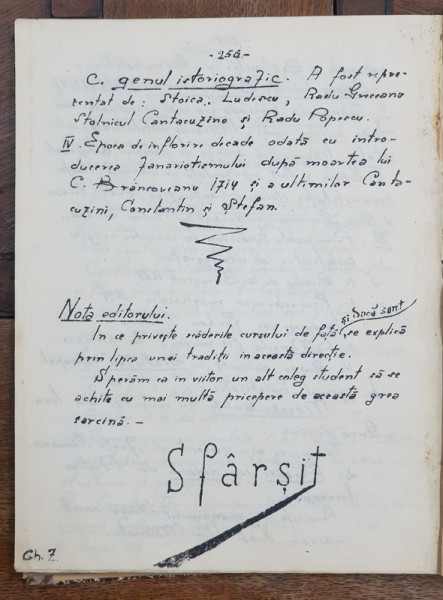 - 256. -
C. genul istoriografic. A fost repre-
zentat de: Stoica Ludescu, Radu Greceanu
Stolnicul Cantacuzino și Radu Popescu.
IV. Epoca de înflorire decade odată cu intro-
ducerea fanariotismului după moartea lui
C. Brâncoveanu 1714 și a ultimilor Canta-
cuzini, Constantin și Ștefan.
Nota editorului.
și dacă sunt
In ce privește scăderile cursului de față, se explică
prin lipsa unei tradiții in această direcție.
Sperăm ca in viitor un alt coleg student să se
achite cu mai multă pricepere de această grea
sarcină. -
Sfârșit
Ch. 7.